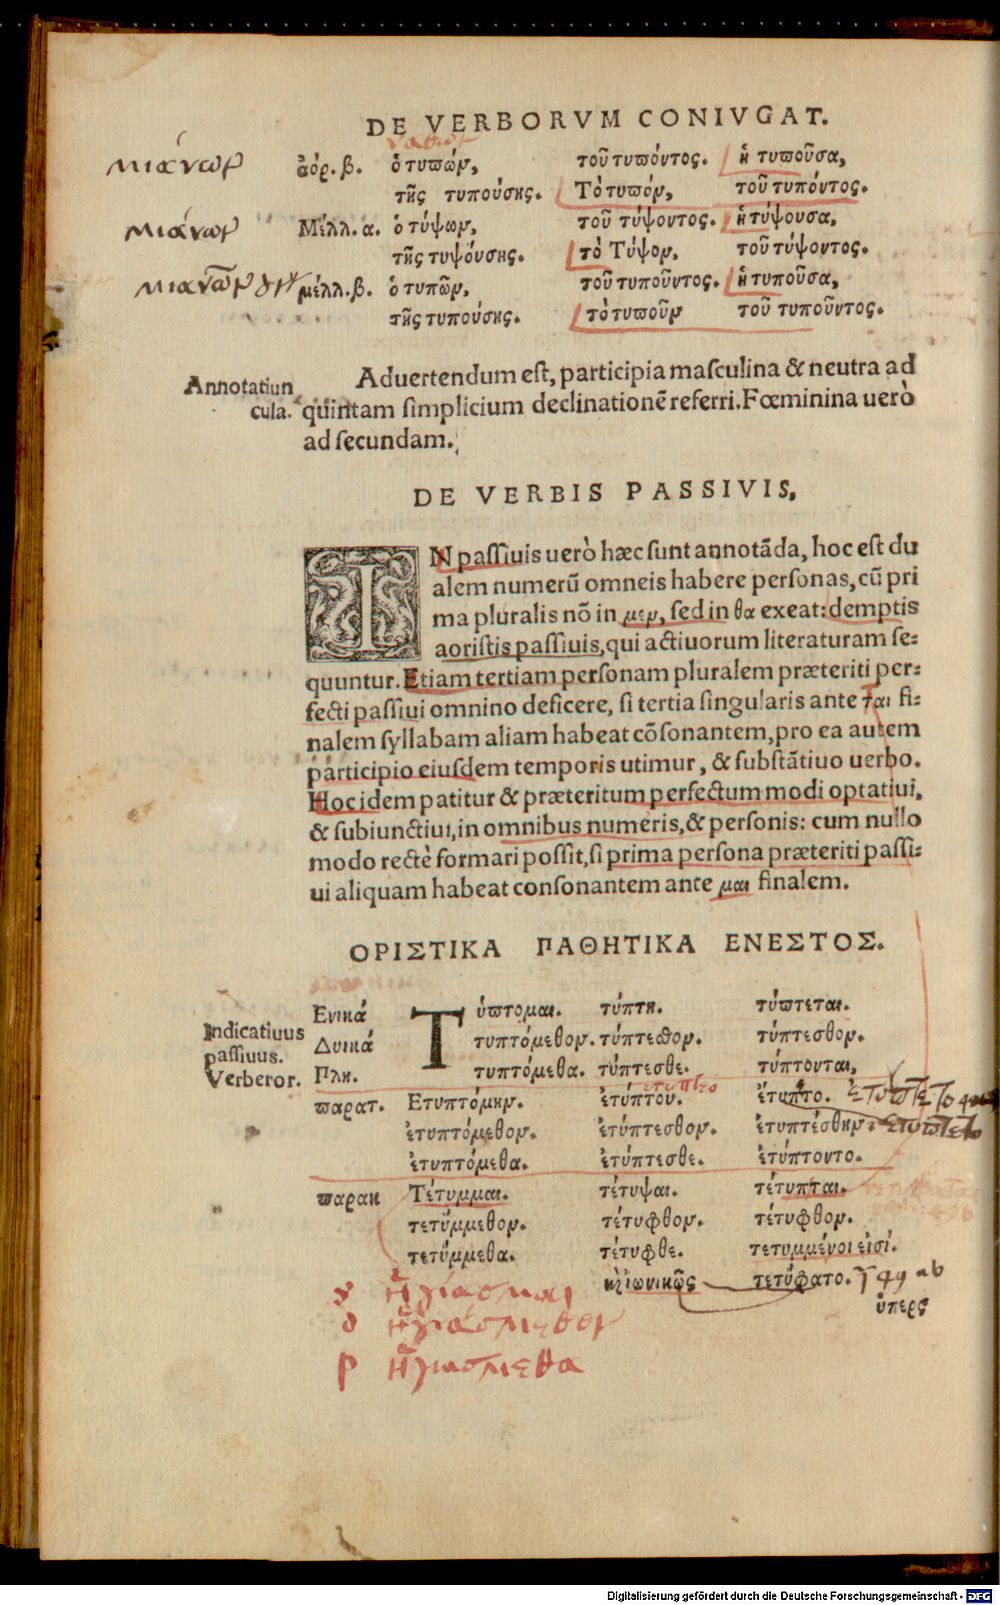 DE VERBORVM CONIVGAT.
ἀόρ. β. ὁ τυπών, τοῦ τυπόντος. ἡ τυποῦσα,
τῆς τυπούσης. Τὸ τυπόν, τοῦ τυπόντος.
Μέλλ. α. ὁ τύψων, τοῦ τύψοντος. ἡ τύψουσα,
τῆς τυψόυσης. τὸ Τύψον, τοῦ τύψοντος.
μέλλ. β. ὁ τυπῶν, τοῦ τυποῦντος. ἡ τυποῦσα,
τῆς τυπούσης. τὸ τυποῦν τοῦ τυποῦντος.
Annotatiun
cula.
Aduertendum est, participia masculina & neutra ad
quintam simplicium declinationē referri. Fœminina uerò
ad secundam.
DE VERBIS PASSIVIS,
IN passiuis uerò hæc sunt annotāda, hoc est du
alem numerū omneis habere personas, cū pri
ma pluralis nō in μεν, sed in θα exeat: demptis
aoristis passiuis, qui actiuorum literaturam se-
quuntur. Etiam tertiam personam pluralem præteriti per-
fecti passiui omnino deficere, si tertia singularis ante ται fi-
nalem syllabam aliam habeat cōsonantem, pro ea autem
participio eiusdem temporis utimur, & substātiuo uerbo.
Hoc idem patitur & præteritum perfectum modi optatiui,
& subiunctiui, in omnibus numeris, & personis: cum nullo
modo rectè formari possit, si prima persona præteriti passi-
ui aliquam habeat consonantem ante μαι finalem.
ΟΡΙΣΤΙΚΑ ΠΑΘΗΤΙΚΑ ΕΝΕΣΤΟΣ.
Indicatiuus
passiuus.
Verberor.
Ενικά Τύπτομαι. τύπτη. τύπτεται.
Δυικά τυπτόμεθον. τύπτεσθον. τύπτεσθον.
Πλη. τυπτόμεθα. τύπτεσθε. τύπτονται,
παρατ. Ετυπτόμην. ἐτύπτου. ἔτυπτο.
ἐτυπτόμεθον. ἐτύπτεσθον. ἐτυπτέσθην.
ἐτυπτόμεθα. ἐτύπτεσθε. ἐτύπτοντο.
παρακ Τέτυμμαι. τέτυψαι. τέτυπται.
τετύμμεθον. τέτυφθον. τέτυφθον.
τετύμμεθα. τέτυφθε. τετυμμένοι εἰσί.
κ̀ ἰωνικῶς τετύφατο.
Digitalisierung gefördert durch die Deutsche Forschungsgemeinschaft - DFG